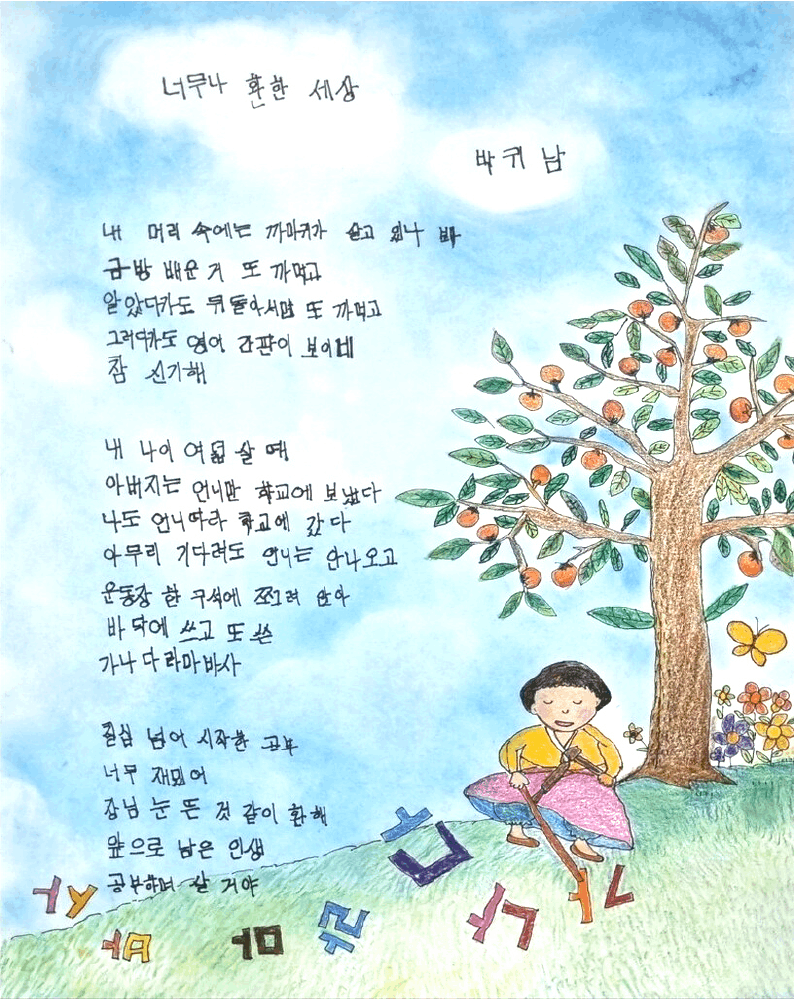 너무나 환한 세상
바귀남
내 머리 속에는 까마귀가 살고 있나 봐
금방 배운 거 또 까먹고
알았다가도 뒤돌아서면 또 까먹고
그러다가도 영어 간판이 보이네
참 신기해
내 나이 여덟 살 때
아버지는 언니만 학교에 보냈다
나도 언니따라 학교에 갔다
아무리 기다려도 언니는 안나오고
운동장 한 구석에 쪼그려 앉아
바닥에 쓰고 또 쓴
가나다라마바사
칠십 넘어 시작한 공부
너무 재밌어
장님 눈 뜬 것 같이 환해
앞으로 남은 인생
공부하며 살 거야
가 나 다 라 마 바 사